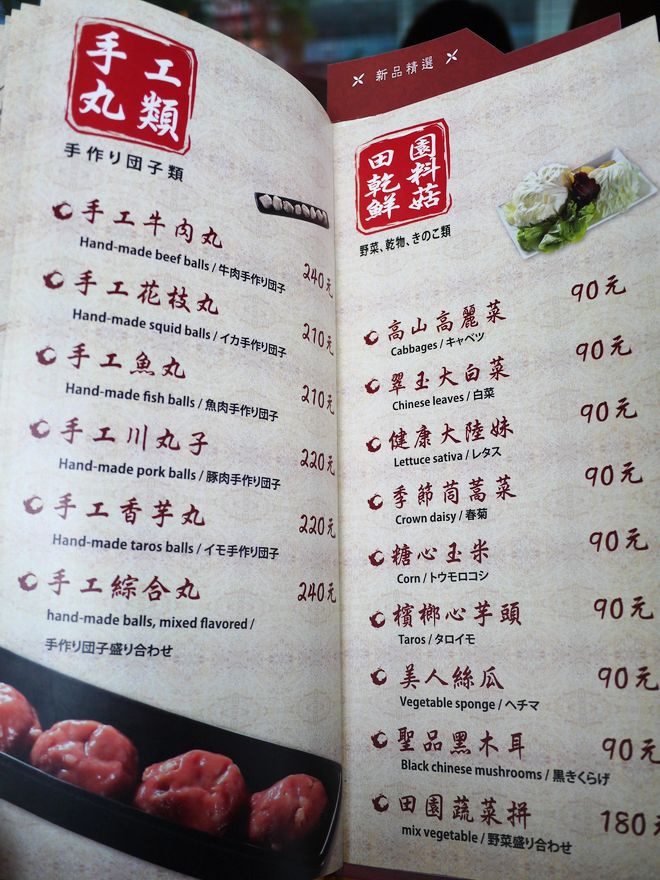 手工
丸類
手作り団子類
手工牛肉丸
Hand-made beef balls / 牛肉手作り団子
240元
手工花枝丸
Hand-made squid balls / イカ手作り団子
210元
手工魚丸
Hand-made fish balls / 魚肉手作り団子
210元
手工川丸子
Hand-made pork balls / 豚肉手作り団子
220元
手工香芋丸
Hand-made taros balls / イモ手作り団子
220元
手工綜合丸
240元
hand-made balls, mixed flavored /
手作り団子盛り合わせ
新品精選
田園
乾料
鮮菇
野菜、乾物、きのこ類
高山高麗菜
90元
Cabbages / キャベツ
翠玉大白菜
90元
Chinese leaves / 白菜
健康大陸妹
90元
Lettuce sativa / レタス
季節茼蒿菜
90元
Crown daisy / 春菊
糖心玉米
90元
Corn / トウモロコシ
檳榔心芋頭
90元
Taros / タロイモ
美人絲瓜
90元
Vegetable sponge / ヘチマ
聖品黑木耳
90元
Black chinese mushrooms / 黒きくらげ
田園蔬菜拼
180元
mix vegetable / 野菜盛り合わせ